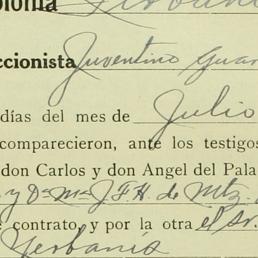 olonia
ccionista Juventino Guar
días del mes de Julio
comparecieron, ante los testigos
don Carlos y don Angel del Pala
y Dª Mª J. F. H. de Mtz.
e contrato, y por la otra el Sr.